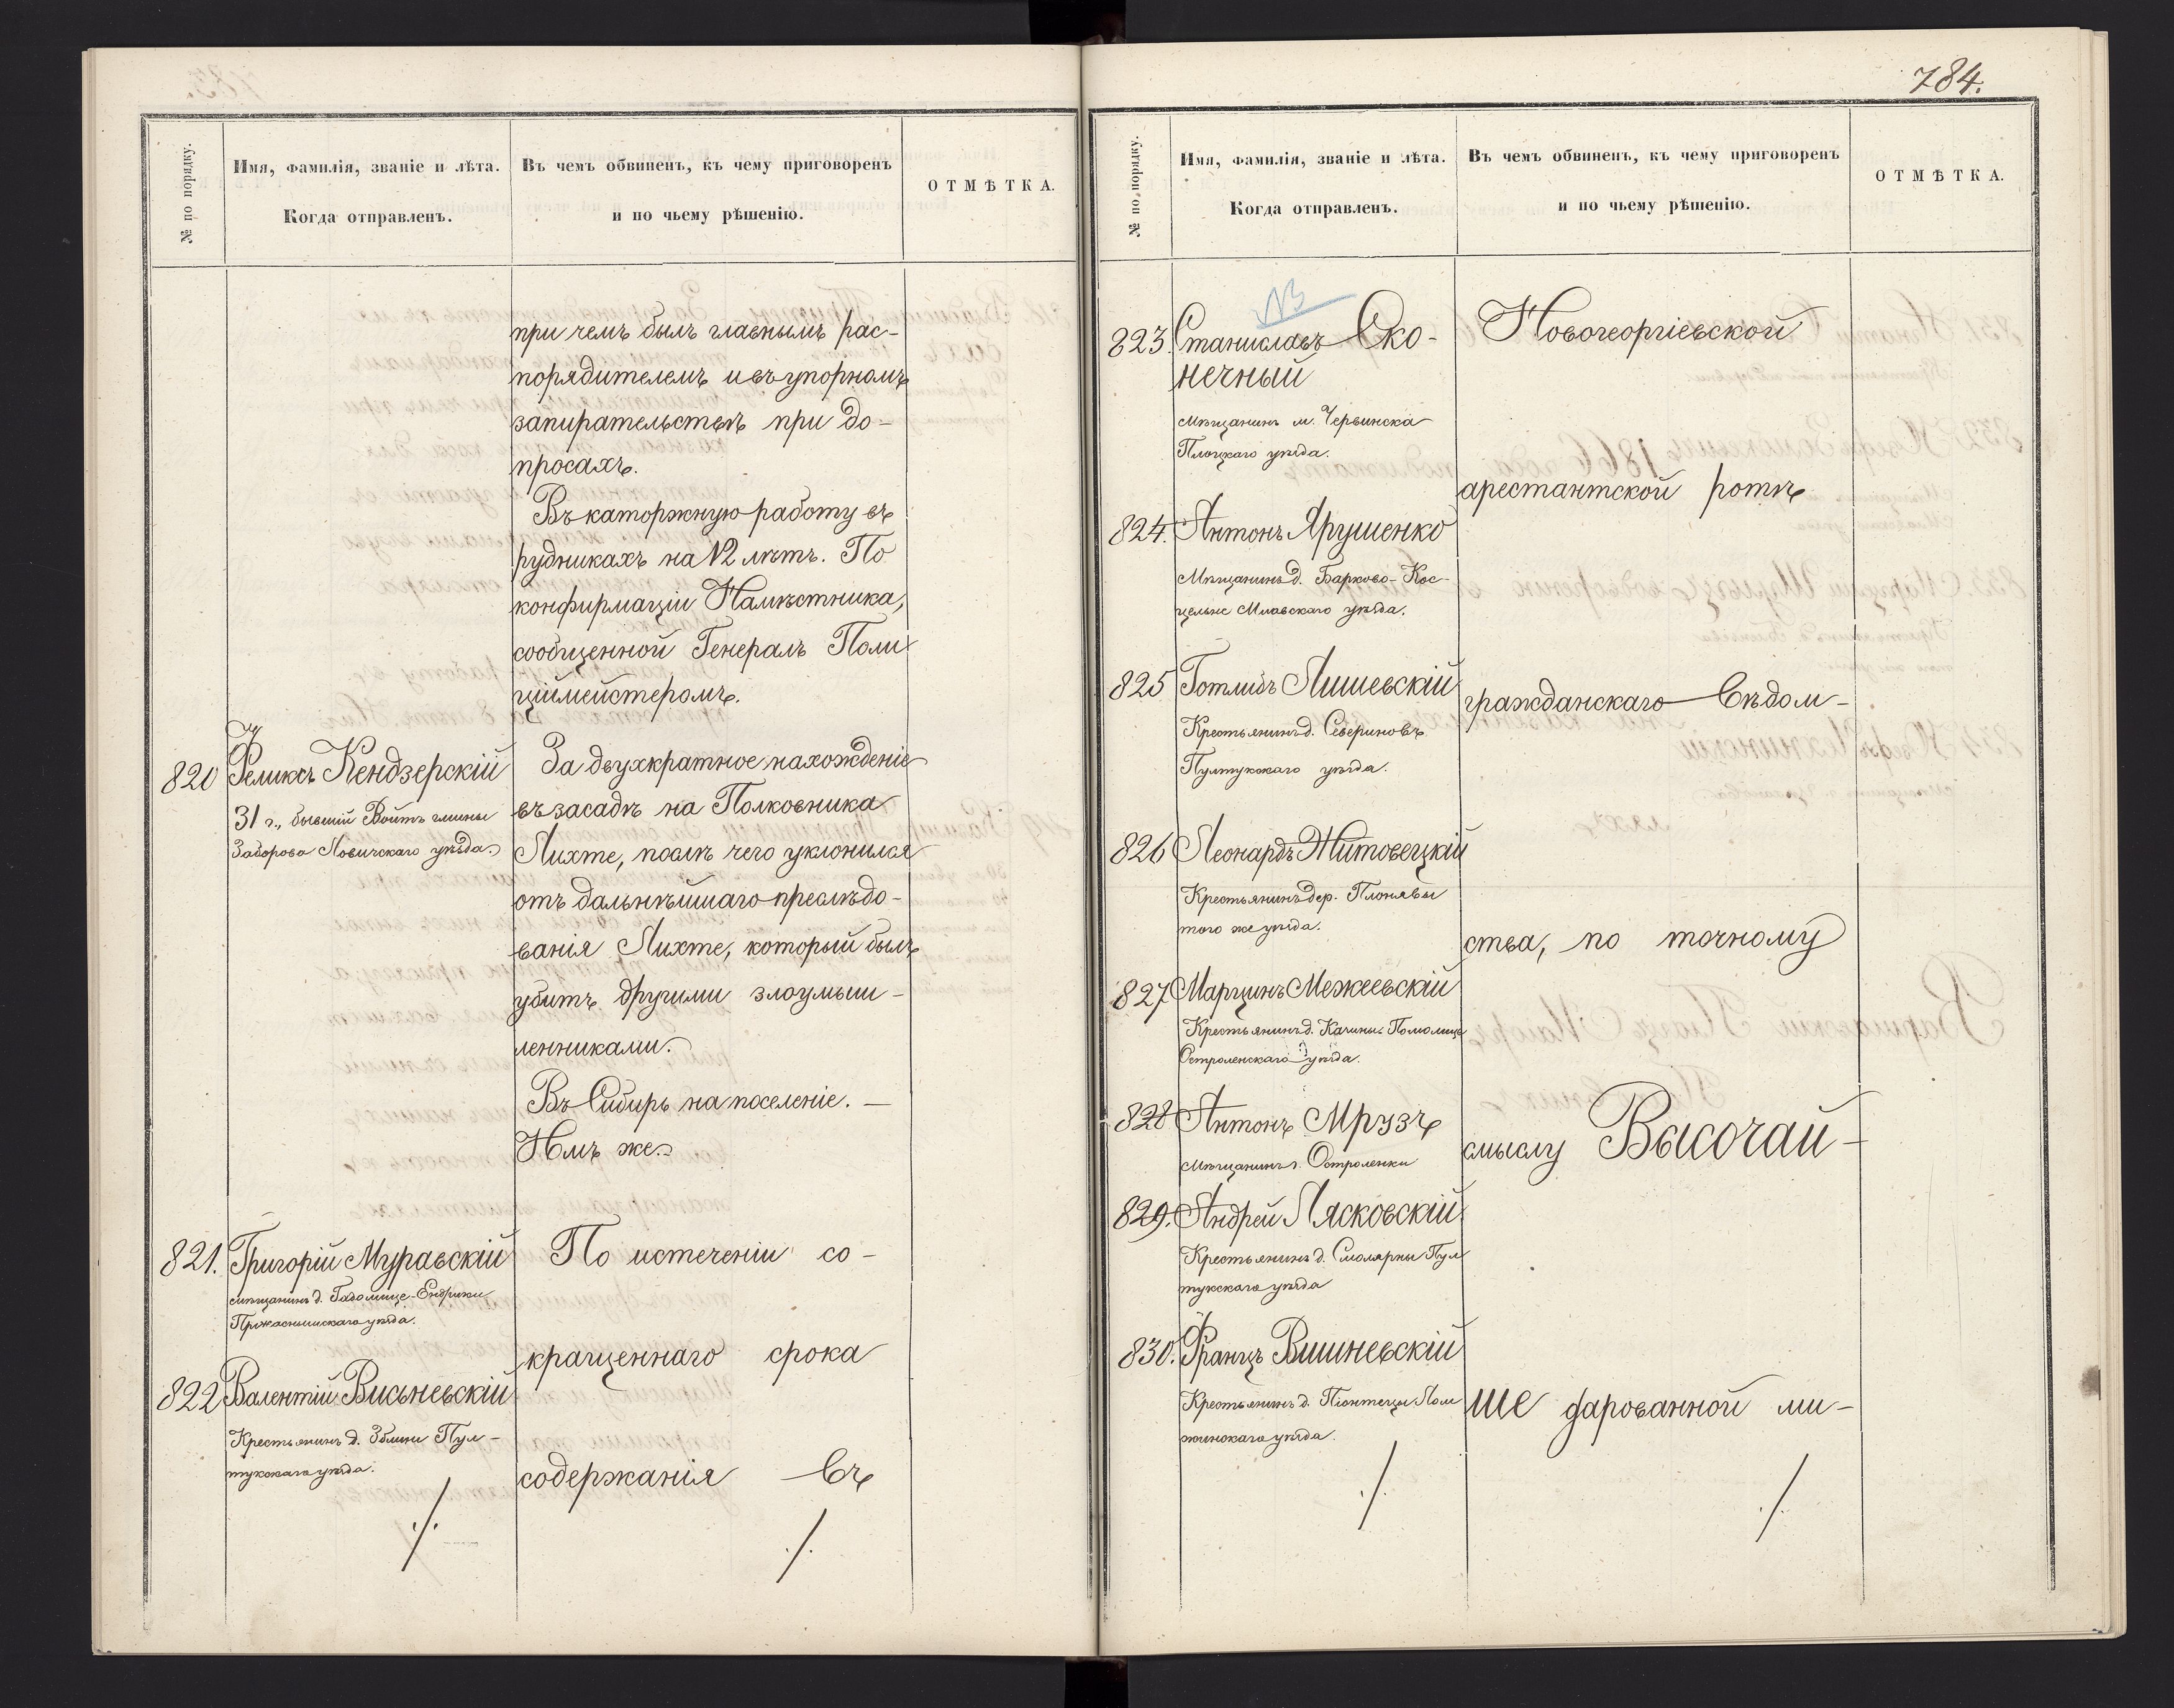 № по порядку.
Имя, фамилія, званіе и лѣта.
Когда отправленъ.
Въ чемъ обвиненъ, къ чему приговоренъ
и по чьему рѣшенію.
ОТМѢТКА.
при чемъ былъ главнымъ рас-
порядителемъ и въ упорномъ
запирательствѣ при до-
просахъ.
Въ каторжную работу въ
рудникахъ на 12 лѣтъ. По
конфирмаціи Намѣстника,
сообщенной Генералъ Поли
ціймейстеромъ.
820 Феликсъ Кендзерскій
31 г., бывшій Войтъ гмины
Заборова Ловичскаго уѣзда
За двухкратное нахожденіе
въ засадѣ на Полковника
Лихте, послѣ чего уклонился
отъ дальнѣйшаго преслѣдо-
ванія Лихте, который былъ
убитъ другими злоумыш-
ленниками.
Въ Сибирь на поселеніе. —
Имъ же.
821. Григорій Муравскій
мѣщанинъ д. Гадомице-Ендрики
Пржаснышскаго уѣзда.
822 Валентій Висьневскій
Крестьянинъ д. Пул-
тускаго уѣзда.
./.
По истеченіи со-
кращеннаго срока
содержанія въ
./.
784.
№ по порядку.
Имя, фамилія, званіе и лѣта.
Когда отправленъ.
Въ чемъ обвиненъ, къ чему приговоренъ
и по чьему рѣшенію.
ОТМѢТКА.
823. Станиславъ Око-
нечный
мѣщанинъ м. Червинска
Плоцкаго уѣзда.
824. Антонъ Ярушенко
Мѣщанинъ д. Барково-Кос-
цельне Млавскаго уѣзда.
825 Готлибъ Лишевскій
Крестьянинъ д. Севериновъ
Пултускаго уѣзда.
826 Леонардъ Житовецкій
Крестьянинъ дер. Плонявы
того же уѣзда.
827 Марцинъ Межеевскій
Крестьянинъ д.
Остроленскаго уѣзда.
828 Антонъ Мрузъ
мѣщанинъ г. Остроленки
829. Андрей Лясковскій
Крестьянинъ д. Смолярни Пул
тускскаго уѣзда
830. Францъ Вишневскій
Крестьянинъ д. Лом
жинскаго уѣзда.
./.
Новогеоргіевской
арестантской ротѣ
гражданскаго вѣдом-
ства, по точному
смыслу Высочай-
ше дарованной ми-
./.